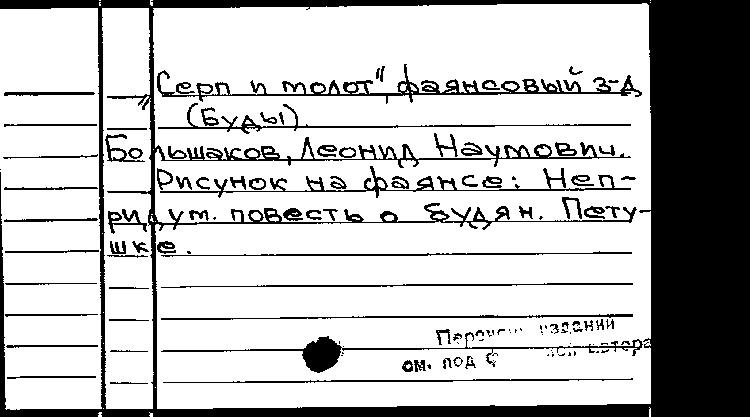 „Серп и молот", фаянсовый з-д
(Буды).
Большаков, Леонид Наумович.
Рисунок на фаянсе: Неп-
ридум. повесть о будян. Пету-
шке.
изданий
см. под